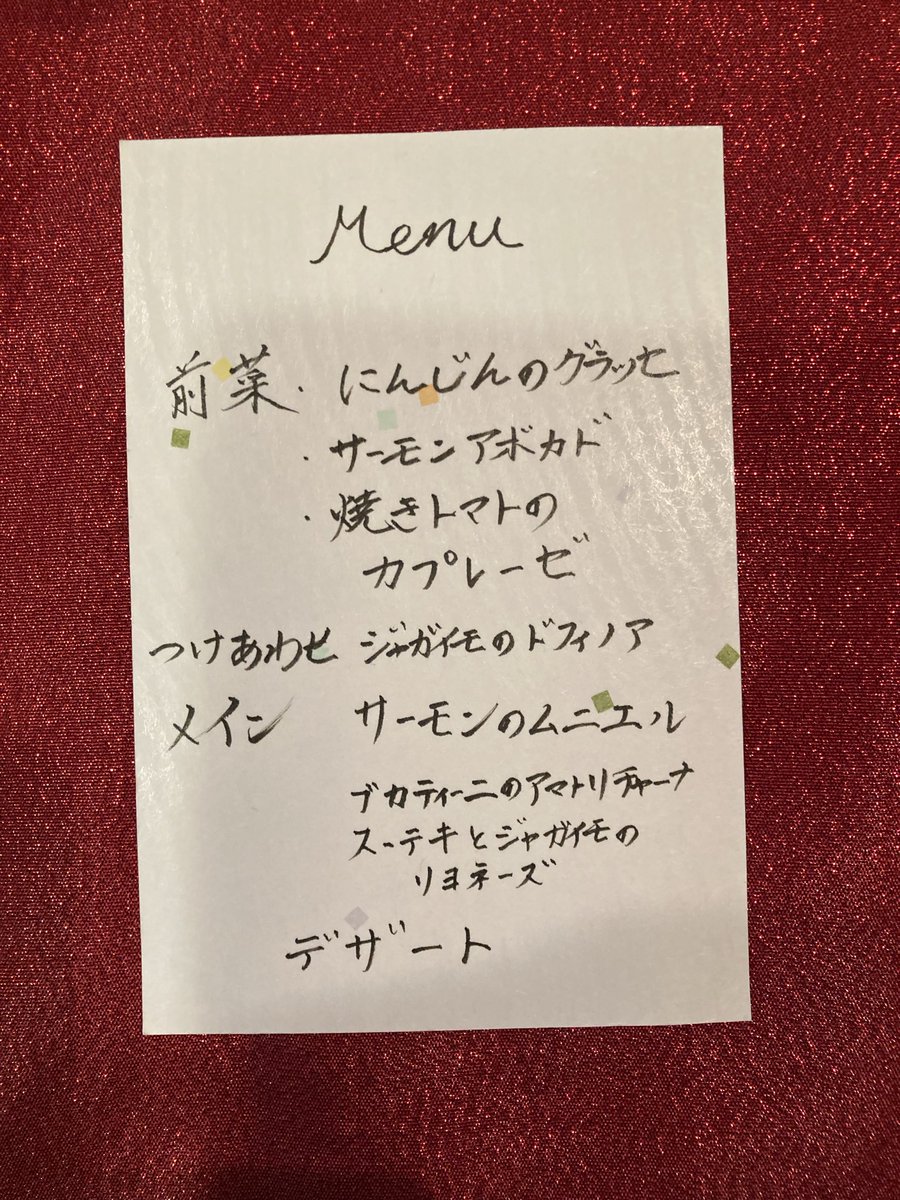 Menu
前菜・にんじんのグラッセ
・サーモンアボカド
・焼きトマトの
カプレーゼ
つけあわせ ジャガイモのドフィノア
メイン サーモンのムニエル
ブカティーニのアマトリチャーナ
ステーキとジャガイモの
リヨネーズ
デザート